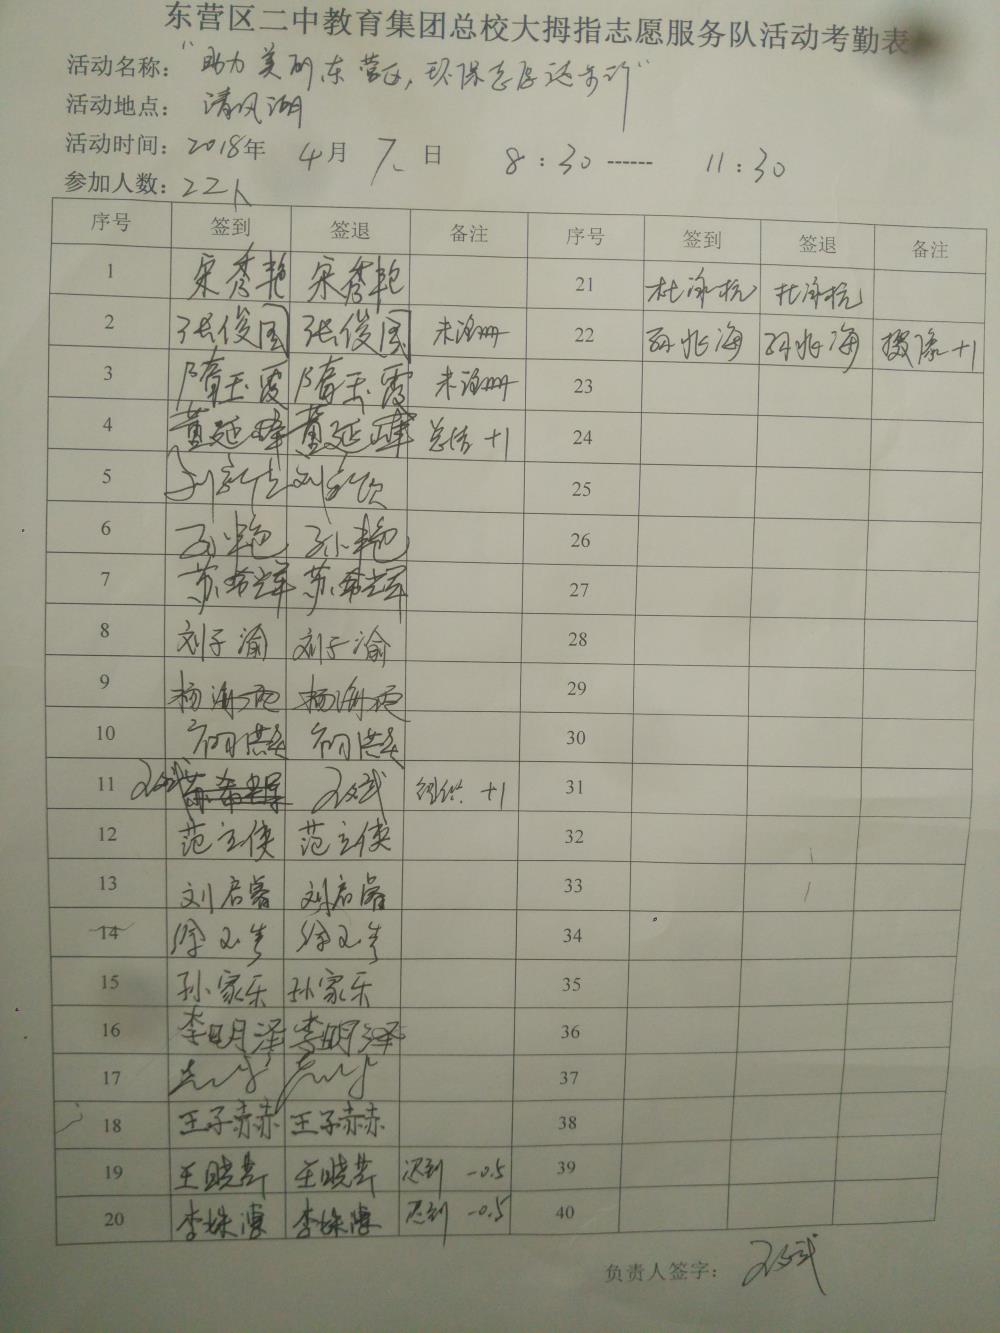 东营区二中教育集团总校大拇指志愿服务队活动考勤表
活动名称：“助力美丽东营区，环保志愿送步行”
活动地点：清风湖
活动时间：2018年 4月 7日 8:30------ 11:30
参加人数：22人
序号 签到 签退 备注 序号 签到 签退 备注
1 宋秀艳 宋秀艳 21 杜泳杭 杜泳杭
2 张俊国 张俊国 未注册 22 孙兆海 孙兆海 摄像+1
3 隋玉霞 隋玉霞 未注册 23
4 董延峰 董延峰 总结+1 24
5 25
6 孙艳 孙艳 26
7 苏希辉 苏希辉 27
8 刘子渝 刘子渝 28
9 杨海 杨海 29
10 30
11 +1 31
12 范立侠 范立侠 32
13 刘启睿 刘启睿 33
14 徐 徐 34
15 孙家乐 孙家乐 35
16 李明泽 李明泽 36
17 37
18 王子赫 王子赫 38
19 王晓芹 王晓芹 迟到 -0.5 39
20 李 李 迟到 -0.5 40
负责人签字：